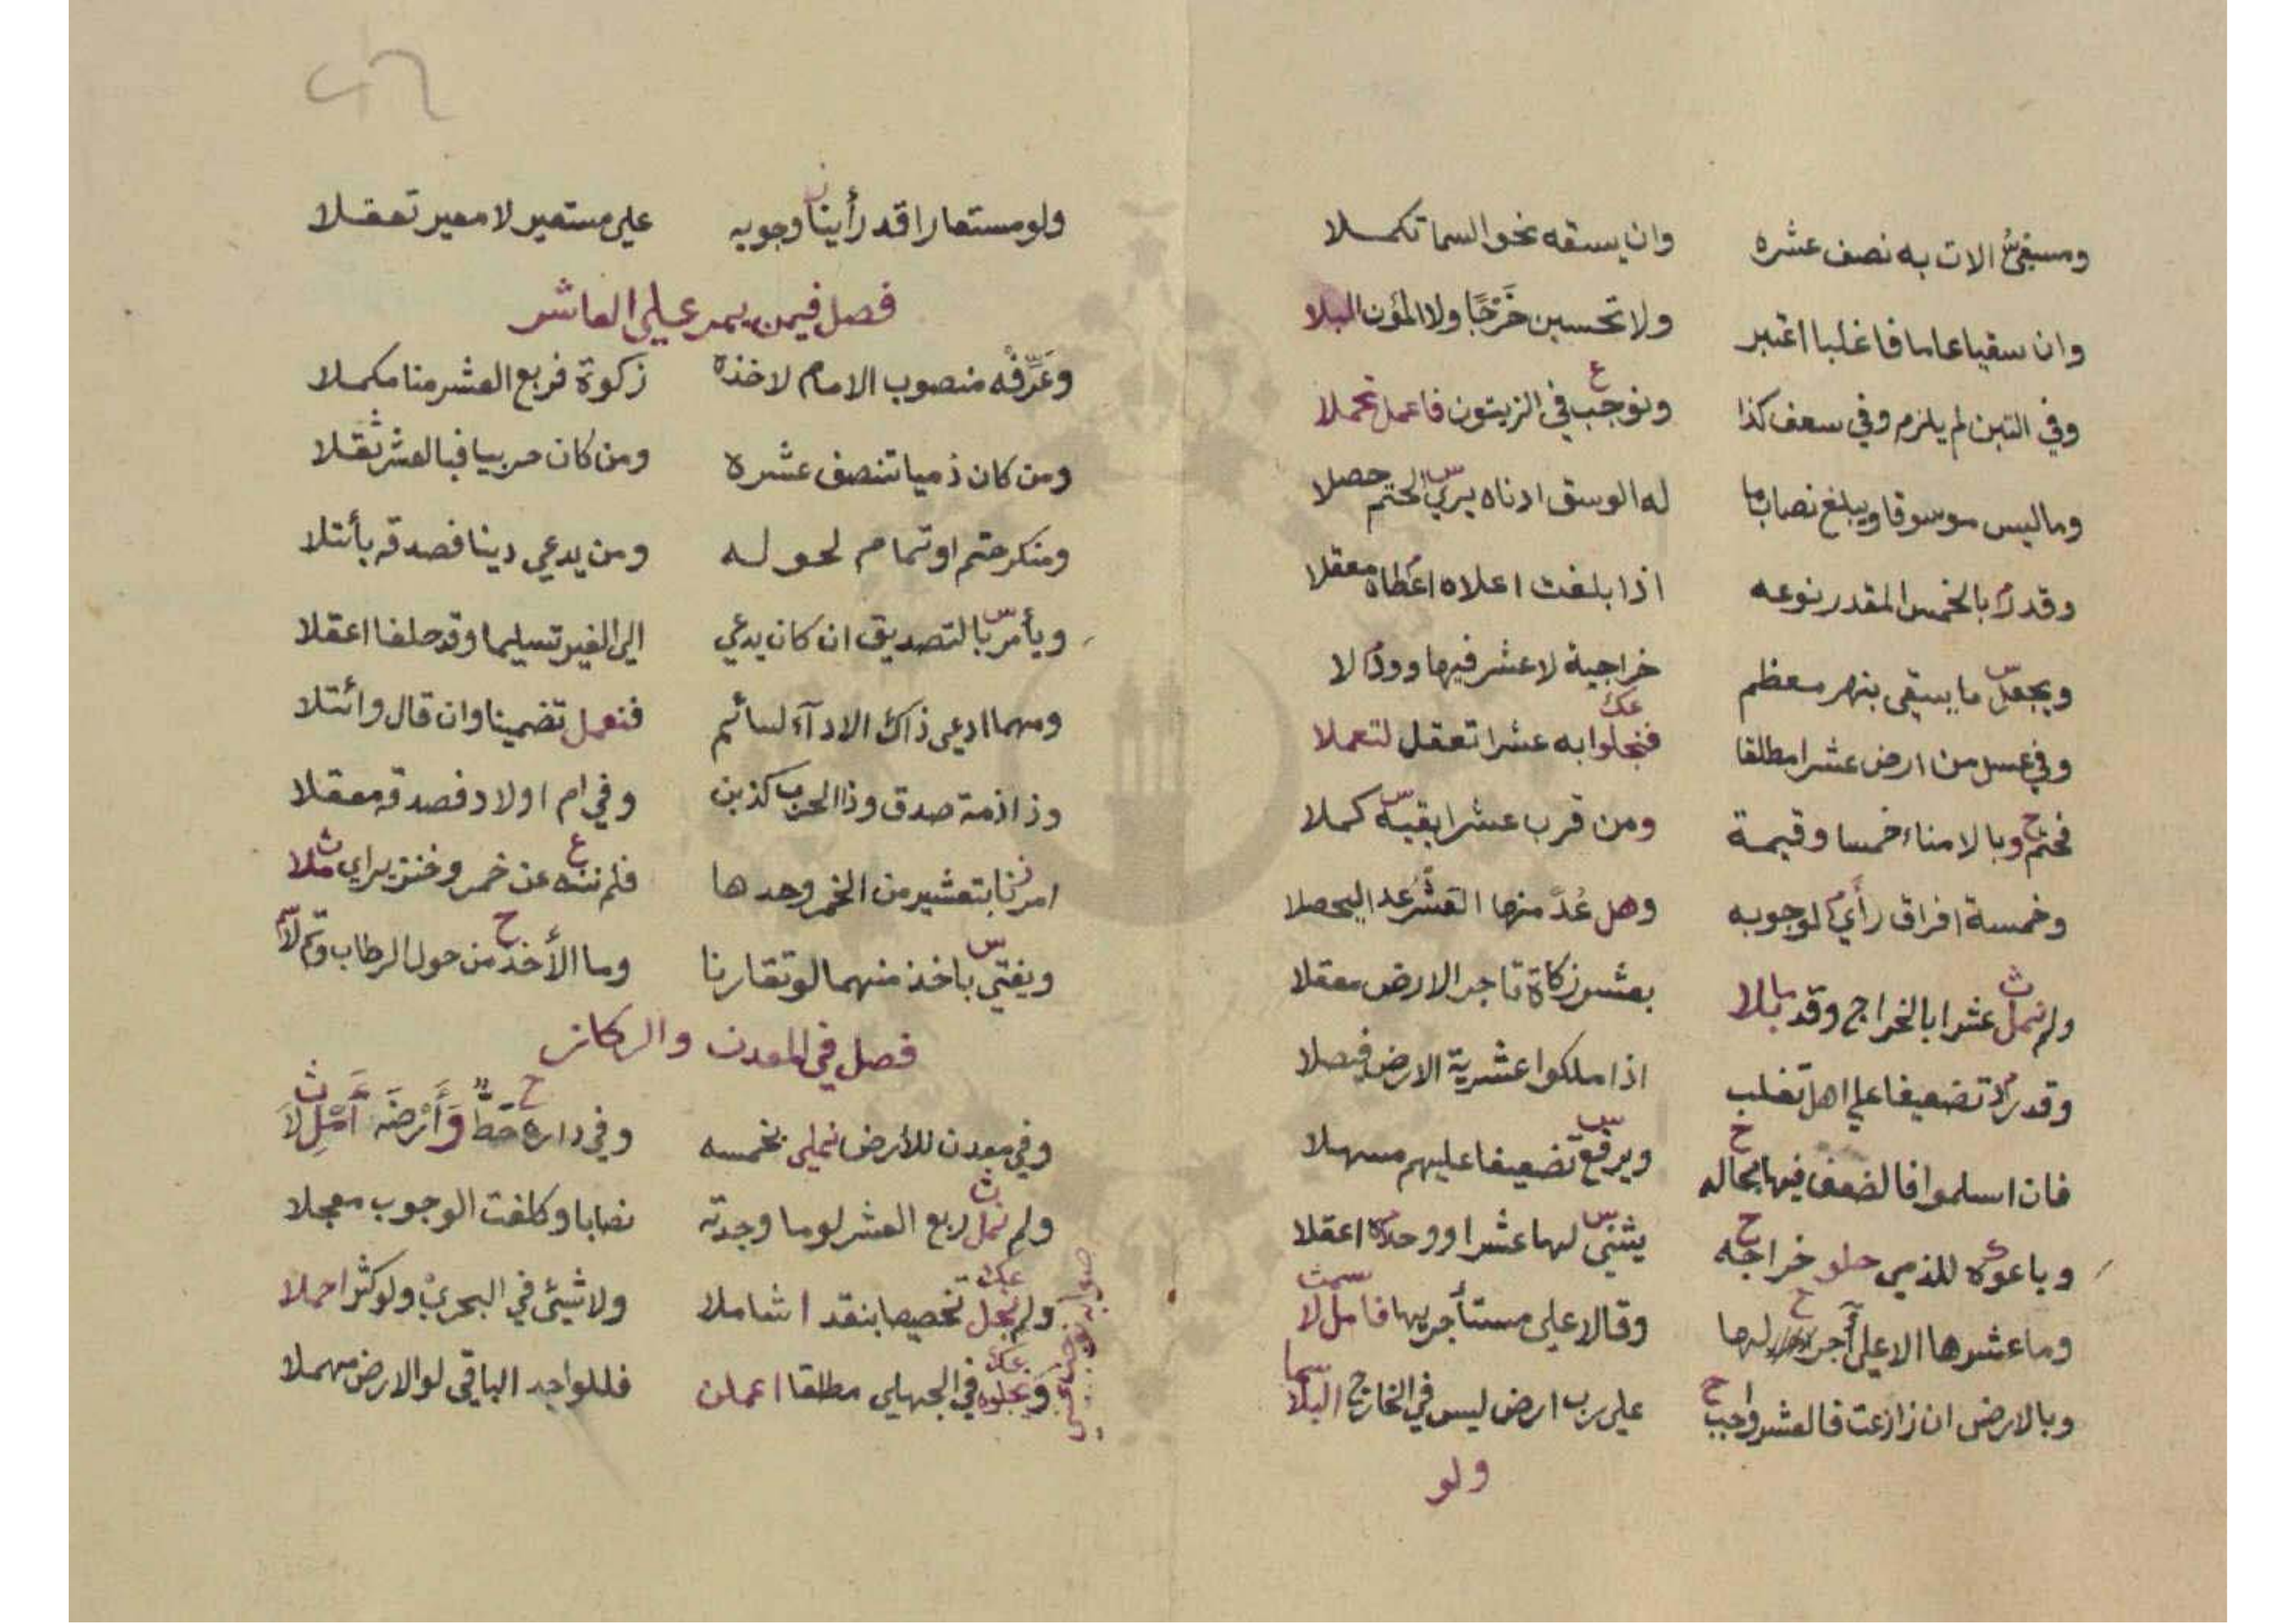 ومسقي الات به نصف عشره وان يسقه نحو السما تكملا
وان سقيا عاما فاغلبا اعتبر ولا تحسبن خرجا ولا المؤن البلا
وفي التبن لم يلزم وفي سعف كذا ونوجب في الزيتون فاعمل تحملا
وما ليس موسوقا ويبلغ نصاب ما له الوسق ادناه يري الحتم حصلا
وقدر بالخمس المقدر نوعه اذا بلغت اعلاه اعطاه معقلا
ويجعل ما يسقى بنهر معظم خراجية لا عشر فيها وود لا
وفي عسل من ارض عشر مطلقا فنجلوا به عشرا تعقل لتعملا
فحتم وبالامناء خمسا وقيمة ومن قرب عشرا بقيه كملا
وخمسة افراق رأي لوجوبه وهل عد منها القشر عد اليحصلا
ولم نمل عشرا بالخراج وقد بلا بعشر زكاة تاجر الارض معقلا
وقد زاد تضعيفا على اهل تغلب اذا ملكوا عشرية الارض فيصلا
فان اسلموا فالضعف فيها بحاله ويرفع تضعيفا عليهم مسهلا
وباعوه للذمي حلو خراجه يثني لها عشرا ووحداه اعقلا
وما عشرها الا على آجر لها وقالا على مستأجريها فامل لا
وبالارض ان زارعت فالعشر واجب على رب ارض ليس في الخارج البلا
ولو
ولو مستعارا قد رأينا وجوبه على مستعير لا معير تعقلا
فصل فيمن يمر على العاشر
وعرفه منصوب الامام لاخذه زكوة فربع العشر منا مكملا
ومن كان ذميا تنصف عشره ومن كان حربيا فبالعشر ثقلا
ومنكر ختم او تمام لحوله ومن يدعي دينا فصدقه بأتلا
ويأمر بالتصديق ان كان يدعي الى الغير تسليما وقد حلفا اعقلا
ومهما ادعى ذاك الادآء لسائم فنعمل تضمينا وان قال وائتلا
وذا ذمة صدق وذا الحرب كذبن وفي ام اولاد فصدقه معقلا
امرنا بتعشير من الخمر وحدها فلم ننه عن خمر وخنزير اي ملا
ويفتي باخذ منهما لو تقارنا وما الأخذ من حول الرطاب
فصل في المعدن والركاز
وفي معدن للأرض نملي بخمسه وفي داره حط وأرضه أمل لا
ولم نمل ربع العشر لو ما وجدته نصابا وكلفت الوجوب معجلا
ولم نجل تخصيصا بنقد اشاملا ولا شيئ في البحري ولو كثر احملا
ونجلوه في الجهلي مطلقا اعملن فللواجد الباقي لو الارض مهملا